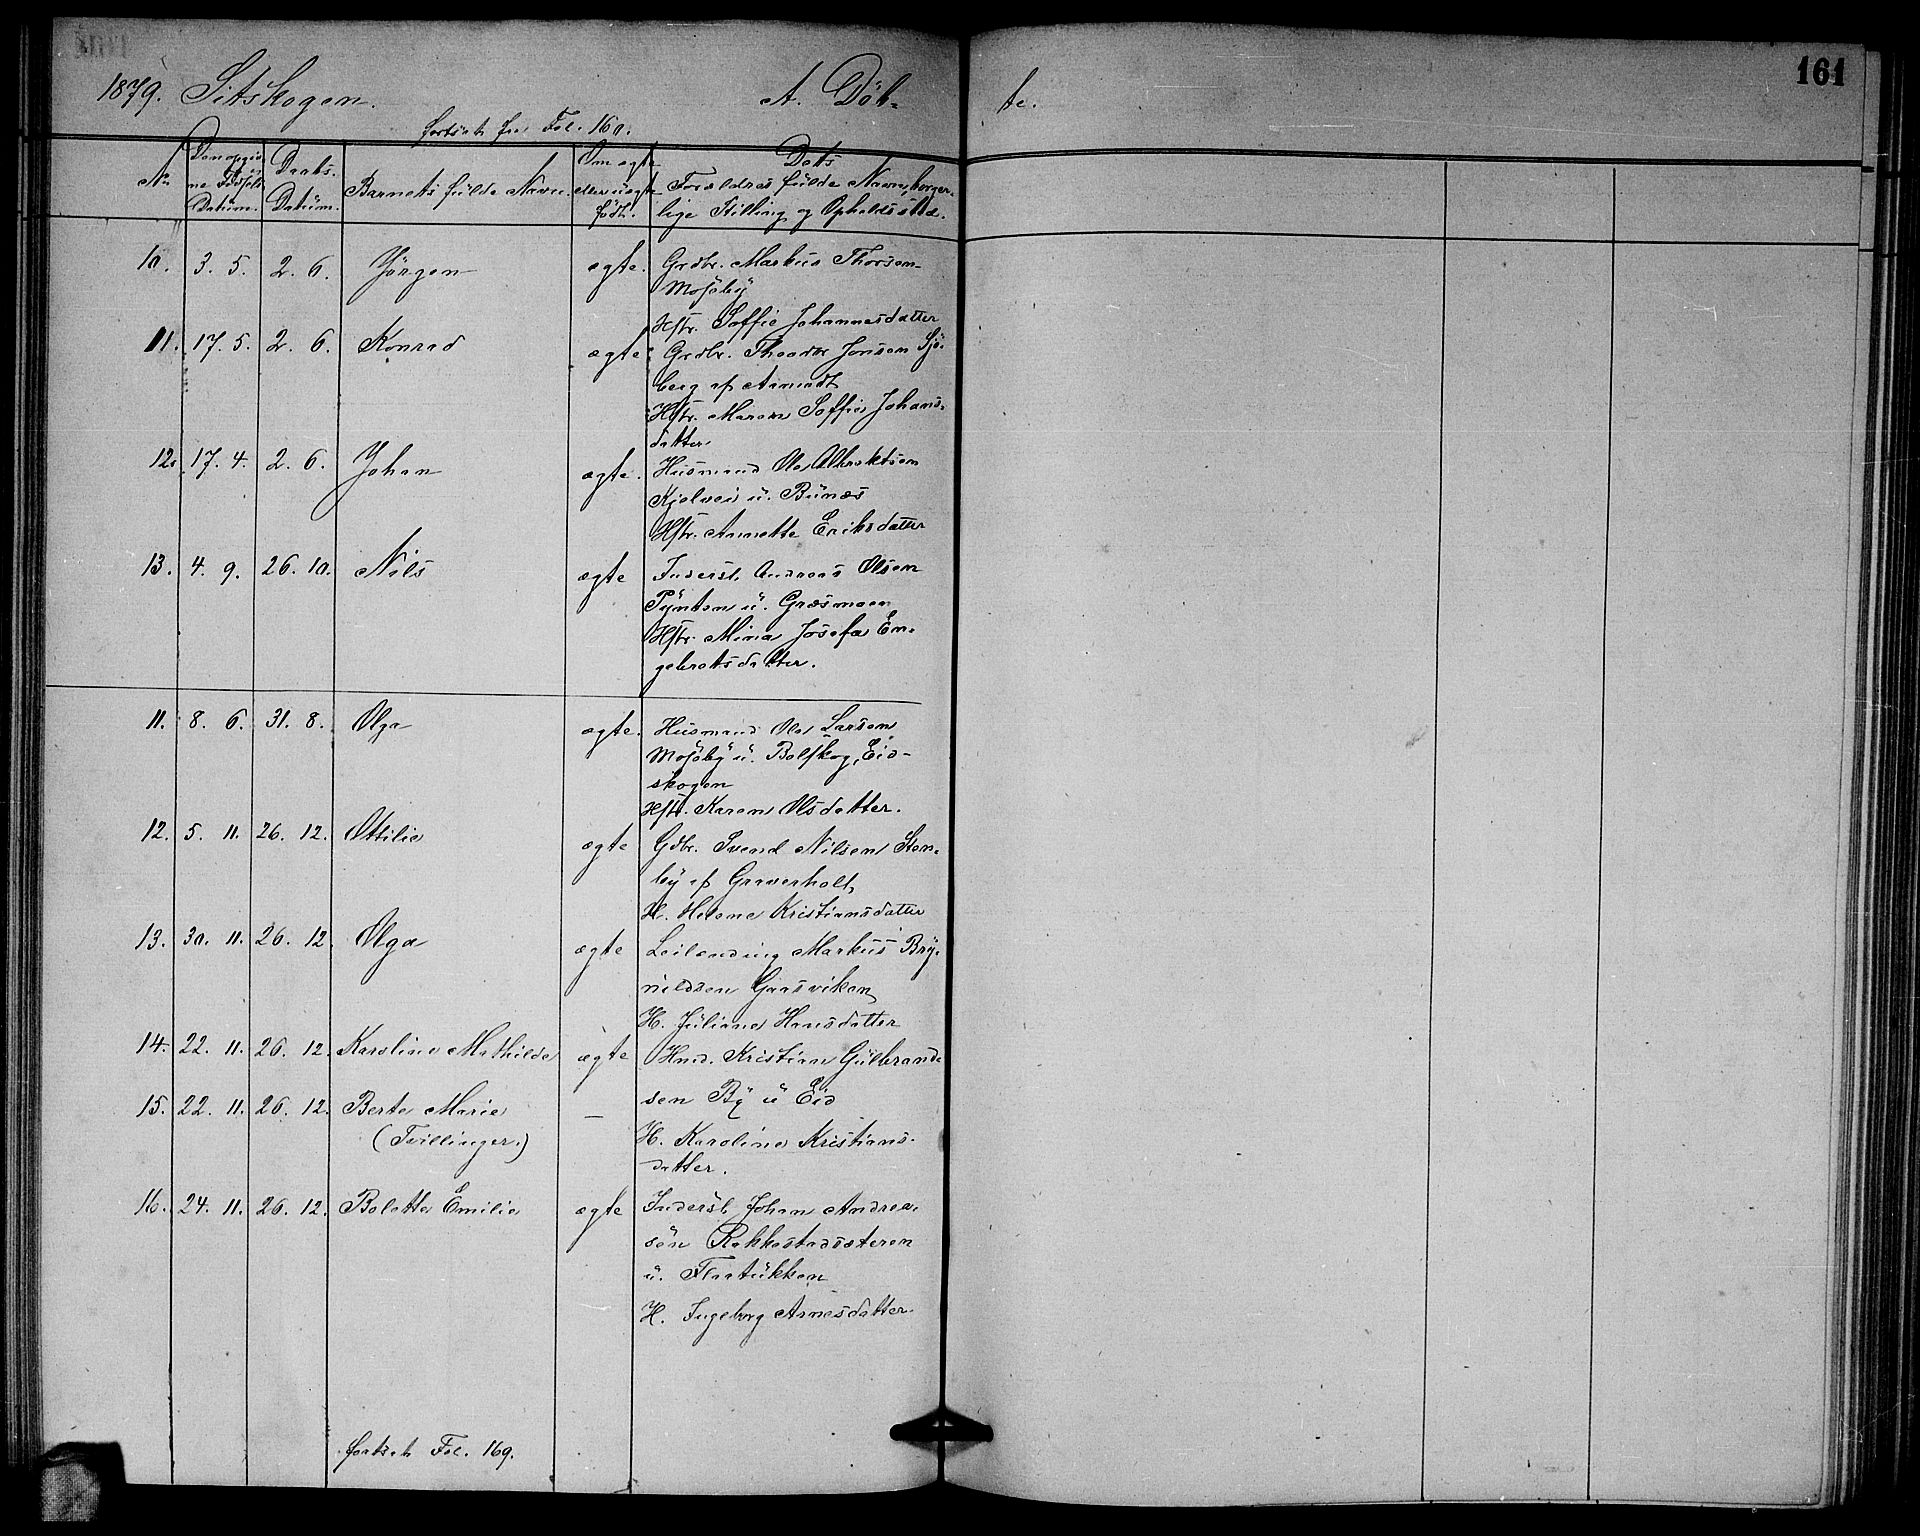 161
1879. Sitskogen. A. Döb- te.
fortsat fra Fol. 160.
No Den opgivne Fødsels Datum. Daabs- Datüm. Barnets fülde Navn. Om ægte eller uægte født. Dets Forældres fülde Navn, borger-
lige Stilling og Opholdssted.
10. 3. 5. 2. 6. Jörgen ægte. Grdbr. Markus Thorsen
Mosöby
Hstr. Soffie Johannesdatter
11. 17. 5. 2. 6. Konrad ægte. Grdbr. Theodor Jonsen Sjö-
berg af
Hstr. Maren Soffie Johans-
datter
12. 17. 4. 2. 6. Johan ægte. Husmand Ole Albrektsen
Kjelvei ü. Bünæs
Hstr. Annette Eriksdatter
13. 4. 9. 26. 10. Nils ægte Inderst Andreas Olsen
Pynten ü. Græsmoen
Hstr. Mina Josefa En-
gebretsdatter.
11. 8. 6. 31. 8. Olga ægte. Husmand Ole Larsen
Mosöby ü. Bolfkog, Eid-
skogen
Hstr. Karen Olsdatter.
12. 5. 11. 26. 12. Ottilie ægte Gdbr. Svend Nilsen Sten-
by af Graverholt
H. Helene Kristiansdatter
13. 30. 11. 26. 12. Olga ægte Leilænding Markus Bry-
nildsen Gaasviken
H. Jüliane Hansdatter
14. 22. 11. 26. 12. Karoline Mathilde ægte Hmd. Kristian Gülbrand-
15. 22. 11. 26. 12. Berte Marie – sen By ü Eid
(Tvillinger.) H. Karoline Kristians-
datter.
16. 24. 11. 26. 12. Bolette Emilie ægte Inderst Johan Andrea-
sen Rakkestadsæteren
ü. Flatükken
H. Ingeborg Arnesdatter.
fortsat Fol. 169.